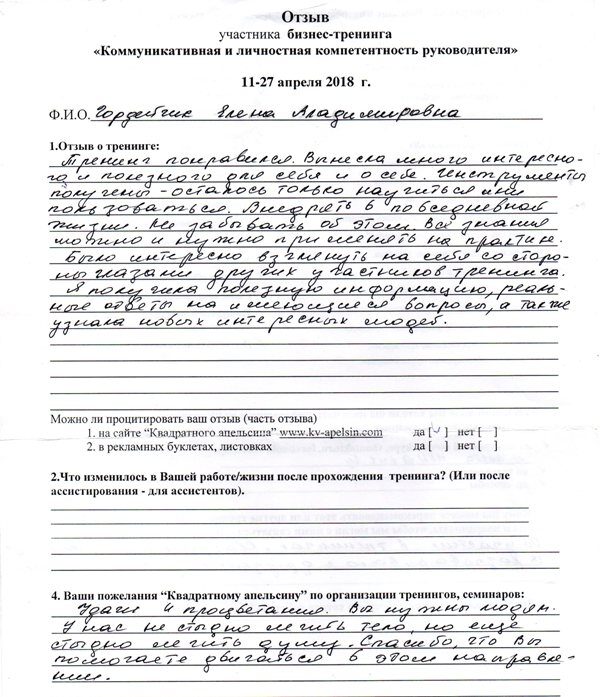 Отзыв
участника бизнес-тренинга
«Коммуникативная и личностная компетентность руководителя»
11-27 апреля 2018 г.
Ф.И.О. Гордейчик Елена Владимировна
1.Отзыв о тренинге:
Тренинг понравился. Вынесла много интересно-
го и полезного для себя и о себе. Инструменты
получены - осталось только научиться ими
пользоваться. Внедрять в повседневной
жизни. Не забывать об этом. Все знания
можно и нужно применять на практике.
Было интересно взглянуть на себя со сторо-
ны глазами других участников тренинга.
Я получила полезную информацию, реаль-
ные ответы на имеющиеся вопросы, а также
узнала новых интересных людей.
Можно ли процитировать ваш отзыв (часть отзыва)
1. на сайте “Квадратного апельсина” www.kv-apelsin.com да [✓] нет [ ]
2. в рекламных буклетах, листовках да [ ] нет [ ]
2.Что изменилось в Вашей работе/жизни после прохождения тренинга? (Или после
ассистирования - для ассистентов).
4. Ваши пожелания “Квадратному апельсину” по организации тренингов, семинаров:
Удачи и процветания. Вы нужны людям.
У нас не стыдно лечить тело, но еще
стыдно лечить душу. Спасибо, что Вы
помогаете двигаться в этом направле-
нии.